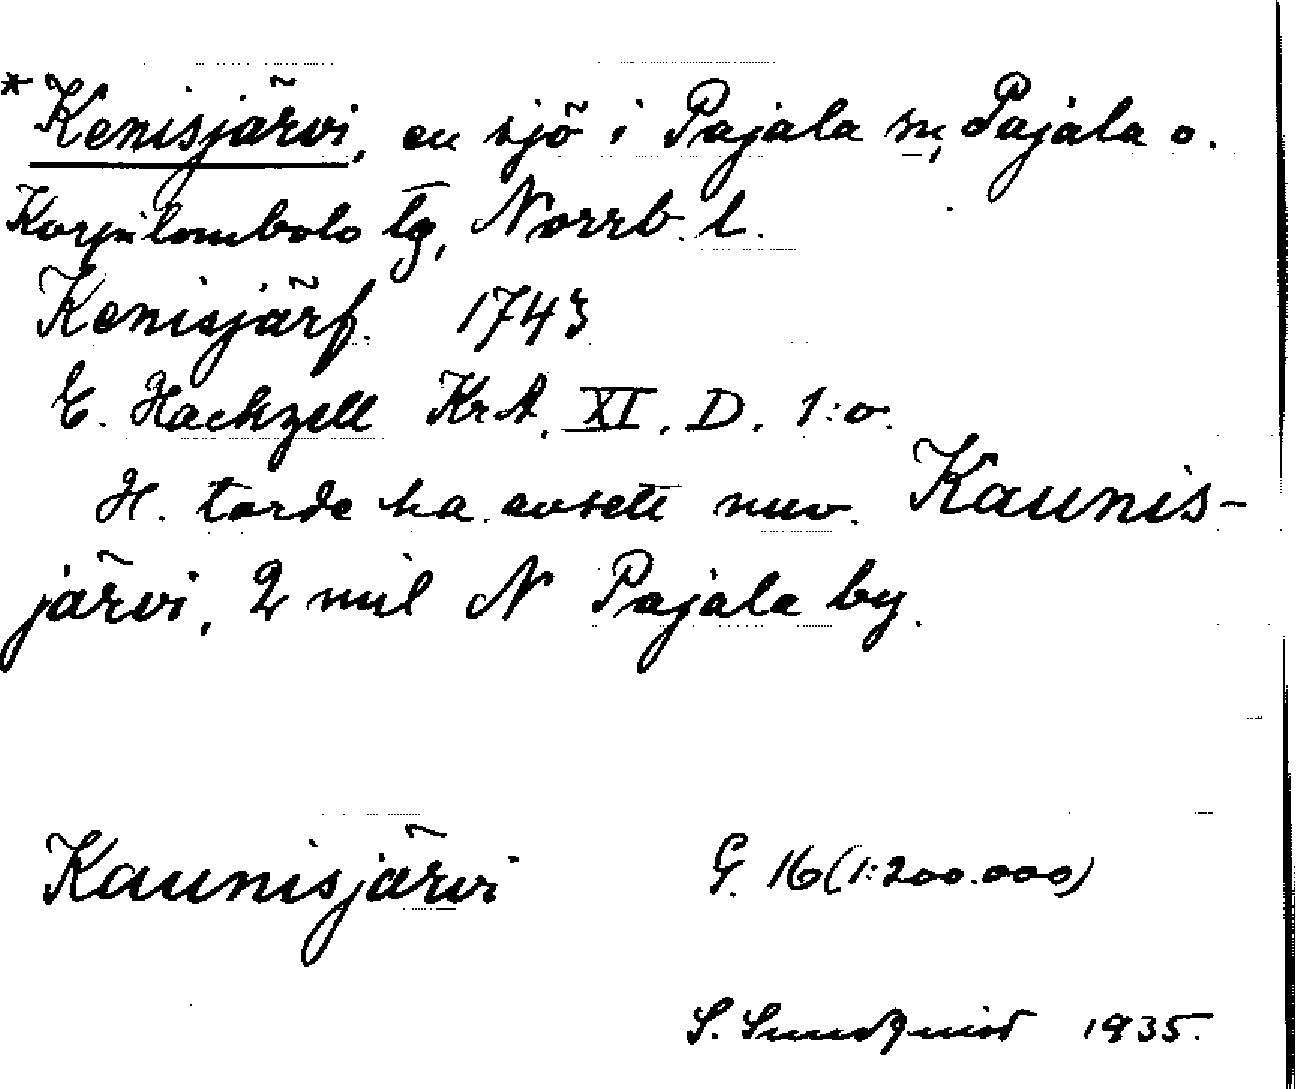 *Kenisjärvi, en sjö i Pajala sn, Pajala o.
Korpilombolo tg, Norrb. l.
Kenisjärf. 1743
E. Hackzell KrA. XI. D. 1:o.
H. torde ha avsett nuv. Kaunis-
järvi, 2 mil N Pajala by.
Kaunisjärvi G. 16 (1:200.000)
S. Sundqvist 1935.